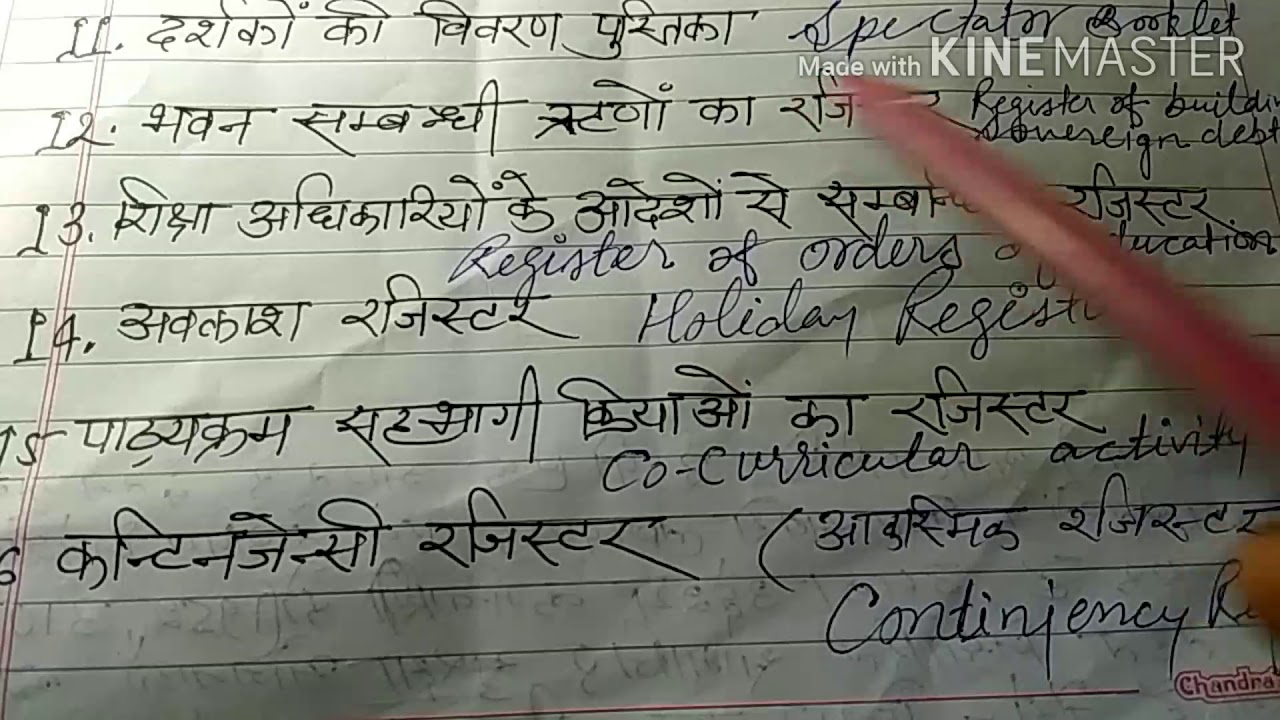 11. दर्शकों की विवरण पुस्तिका Spectator Booklet
Made with KINEMASTER
12. भवन सम्बन्धी ऋणों का रजि Register of buildin
Sovereign debt
13. शिक्षा अधिकारियों के आदेशों से सम्बन्धि रजिस्टर
Register of orders of education
14. अवकाश रजिस्टर Holiday Regist
15 पाठ्यक्रम सहभागी क्रियाओं का रजिस्टर
Co-curricular activity
6 कन्टिनजेन्सी रजिस्टर (आकस्मिक रजिस्टर
Continjency Re
Chandra